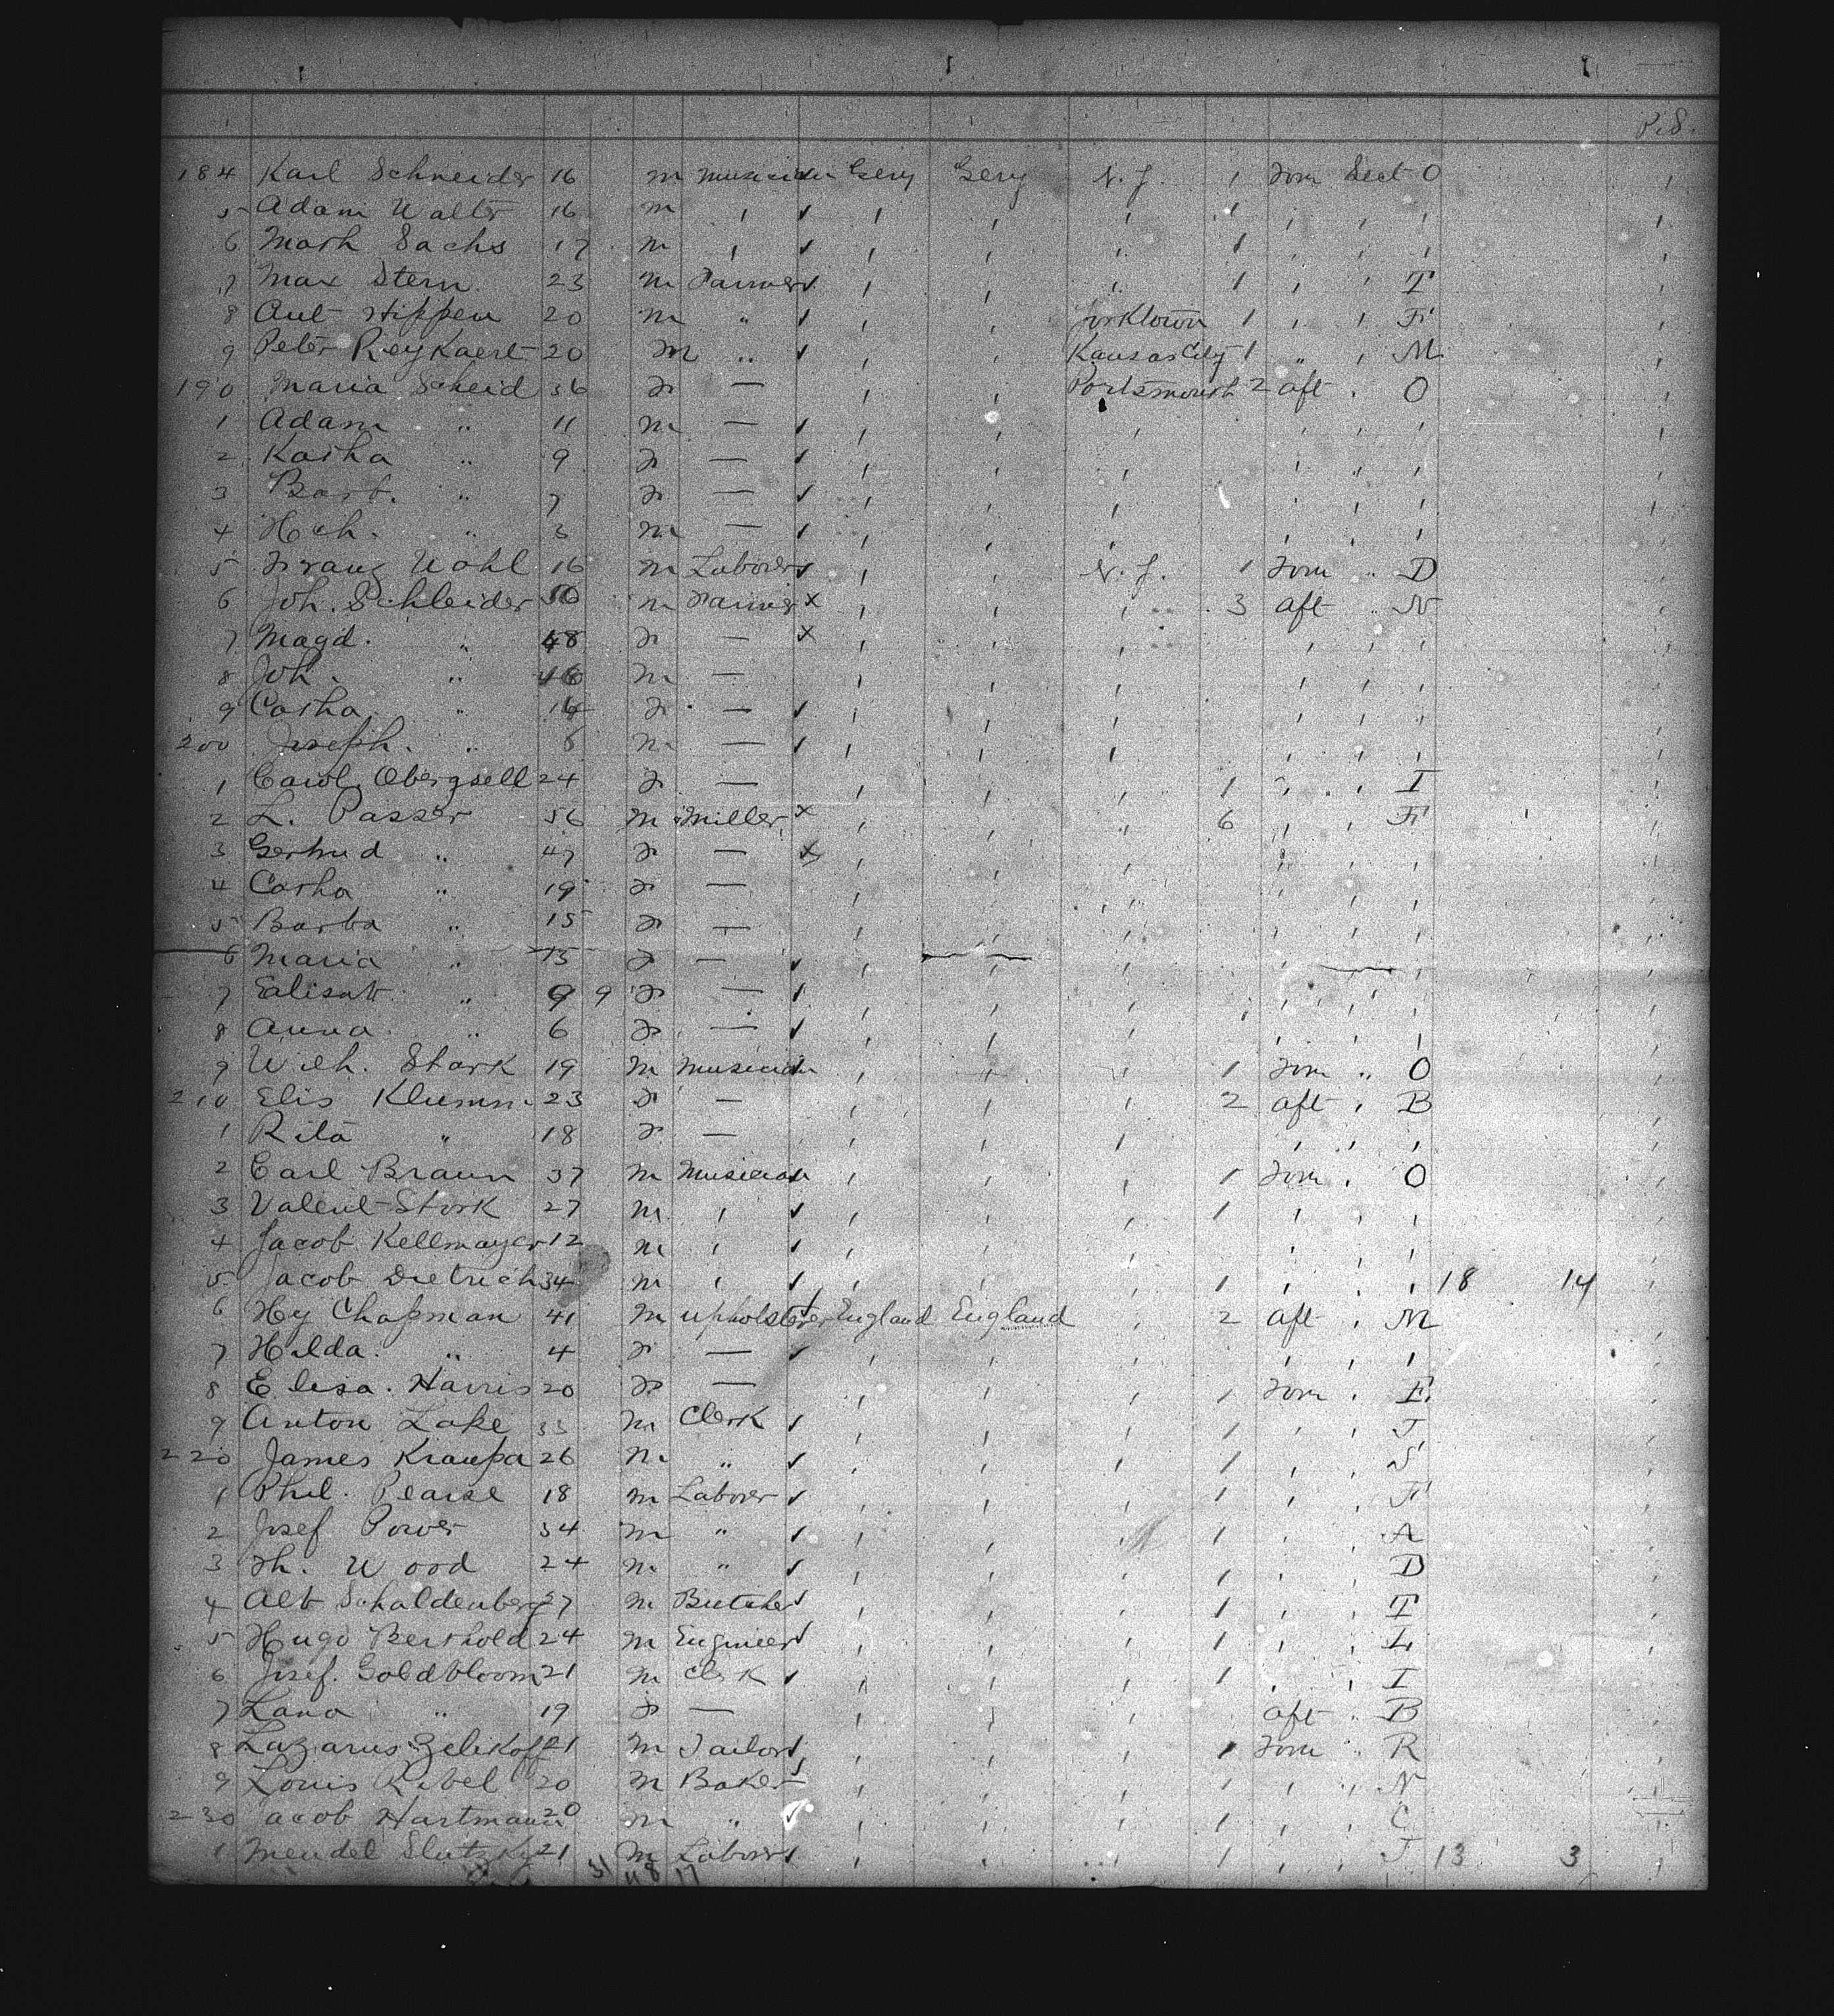 P.S.
184 Karl Schneider 16 m Musician Gery Gery N.Y. 1 Forw Sect O
5 Adam Walter 16 m " ✓ " " " 1 " " "
6 Math Sachs 17 m " ✓ " " " 1 " " "
7 Max Stern 23 m Farmer ✓ " " " 1 " " T
8 Ant Hippen 20 m " ✓ " " Yorktown 1 " " F
9 Peter Reykaert 20 m " ✓ " " Kansas City 1 " " M
190 Maria Scheid 36 F — " " Portsmouth 2 aft " O
1 Adam " 11 m — ✓ " " " " " "
2 Katha " 9 F — ✓ " " " " " "
3 Barb. " 7 F — ✓ " " " " " "
4 Hch. " 3 m — ✓ " " " " " "
5 Franz Wohl 16 m Laborer ✓ " " N.Y. 1 Forw " D
6 Joh. Schleider 50 m Farmer x " " " 3 aft " N
7 Magd. " 48 F — x " " " " " "
8 Joh. " 16 m — " " " " " "
9 Catha " 14 F — ✓ " " " " " "
200 Joseph. " 8 m — ✓ " " " " " "
1 Carol. Obergsell 24 F — " " " 1 " " I
2 L. Passer 56 m Miller x " " " 6 " " F
3 Gertrud " 47 F — x " " " " " "
4 Catha " 19 F — " " " " " "
5 Barba " 15 F — " " " " " "
6 Maria " 13 F — ✓ " " " " " "
7 Ealisab. " 9 9 F — ✓ " " " " " "
8 Anna. " 6 F — ✓ " " " " " "
9 Wilh. Stark 19 m Musician " " " 1 Forw " O
210 Elis Klumm 23 F — " " " 2 aft " B
1 Rita " 18 F — " " " " " "
2 Carl Braun 37 m Musician " " " 1 Forw " O
3 Valent Stork 27 m " ✓ " " " 1 " " "
4 Jacob Kellmayer 12 m " ✓ " " " " " "
5 Jacob Dietrich 34 m " ✓ " " " 1 " " " 18 14
6 Hy Chapman 41 m upholsterer England England " 2 aft " M
7 Hilda. " 4 F — ✓ " " " " " "
8 Elisa. Harris 20 F — " " " 1 Forw " E
9 Anton Lake 33 m Clerk ✓ " " " 1 " " J
220 James Kraupa 26 m " ✓ " " " 1 " " S
1 Phil. Pearse 18 m Laborer ✓ " " " 1 " " F
2 Josef Power 34 m " ✓ " " " 1 " " A
3 Th. Wood 24 m " ✓ " " " 1 " " D
4 Alb Schaldenberg 27 m Butcher ✓ " " " 1 " " T
5 Hugo Berthold 24 m Engineer ✓ " " " 1 " " L
6 Josef. Goldbloom 21 m Clerk ✓ " " " 1 " " I
7 Lana " 19 F — " " " aft " B
8 Lazarus Zelikoff 21 m Tailor ✓ " " " 1 Forw " R
9 Louis Ribel 20 m Baker ✓ " " " 1 " " N
230 acob Hartmann 20 m " ✓ " " " 1 " " C
1 Mendel Slutzky 21 m Laborer ✓ " " " 1 " " J 13 3
31 48 17